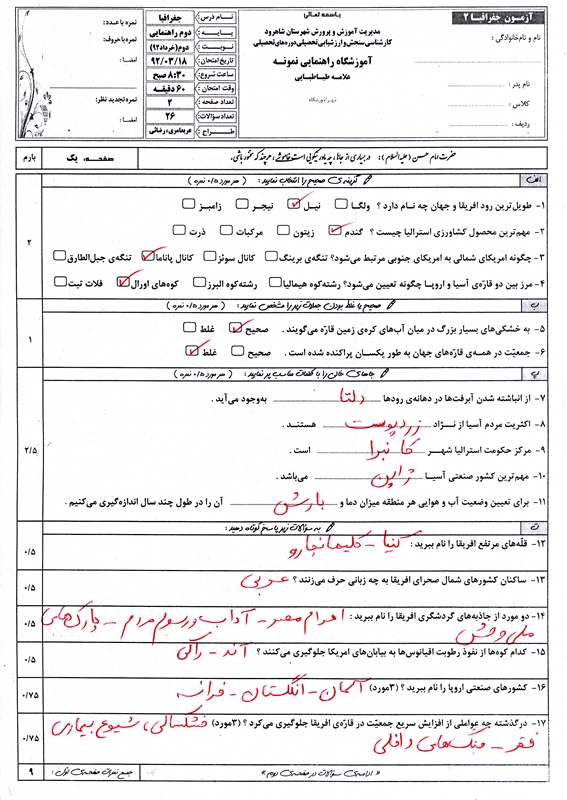 آزمون جغرافیا ۲
نام و نام‌خانوادگی:
نام پدر:
کلاس:
ردیف:
باسمه تعالی
مدیریت آموزش و پرورش شهرستان شاهرود
کارشناسی سنجش و ارزشیابی تحصیلی دوره‌های تحصیلی
آموزشگاه راهنمایی نمونه
علامه طباطبایی
مهر آموزشگاه
نام درس: جغرافیا
پایه: دوم راهنمایی
نوبت: دوم (خرداد۹۲)
تاریخ امتحان: ۹۲/۰۳/۱۸
ساعت شروع: ۸:۳۰ صبح
وقت امتحان: ۶۰ دقیقه
تعداد صفحه: ۲
تعداد سؤالات: ۲۶
طراح: عربعامری، رضائی
نمره با عدد:
نمره با حروف:
امضا:
نمره تجدید نظر:
امضا:
حضرت امام حسن (علیه السلام):
صفحه، یک
بارم
الف گزینه‌ی صحیح را انتخاب نمایید: (هر مورد ۰/۵ نمره)
۱- طویل‌ترین رود افریقا و جهان چه نام دارد؟ ولگا نیل نیجر زامبز
۲- مهم‌ترین محصول کشاورزی استرالیا چیست؟ گندم زیتون مرکبات ذرت
۲
۳- چگونه امریکای شمالی به امریکای جنوبی مرتبط می‌شود؟ تنگه‌ی برینگ کانال سوئز کانال پاناما تنگه‌ی جبل‌الطارق
۴- مرز بین دو قاره‌ی آسیا و اروپا چگونه تعیین می‌شود؟ رشته‌کوه هیمالیا رشته‌کوه البرز کوه‌های اورال فلات تبت
ب صحیح یا غلط بودن جملات زیر را مشخص نمایید: (هر مورد ۰/۵ نمره)
۵- به خشکی‌های بسیار بزرگ در میان آب‌های کره‌ی زمین قاره می‌گویند. صحیح غلط
۱
۶- جمعیّت در همه‌ی قاره‌های جهان به طور یکسان پراکنده شده است. صحیح غلط
پ جاهای خالی را با کلمات مناسب پر نمایید: (هر مورد ۰/۵ نمره)
۷- از انباشته شدن آبرفت‌ها در دهانه‌ی رودها دلتا به‌وجود می‌آید.
۸- اکثریت مردم آسیا از نژاد زردپوست هستند.
۹- مرکز حکومت استرالیا شهر کانبرا است.
۲/۵
۱۰- مهم‌ترین کشور صنعتی آسیا ژاپن می‌باشد.
۱۱- برای تعیین وضعیت آب و هوایی هر منطقه میزان دما و بارش آن را در طول چند سال اندازه‌گیری می‌کنیم.
ت به سؤالات زیر پاسخ کوتاه دهید:
۱۲- قلّه‌های مرتفع افریقا را نام ببرید: کنیا - کلیمانجارو
۰/۵
۱۳- ساکنان کشورهای شمال صحرای افریقا به چه زبانی حرف می‌زنند؟ عربی
۰/۵
۱۴- دو مورد از جاذبه‌های گردشگری افریقا را نام ببرید: اهرام مصر - آداب و رسوم مردم - پارک‌های
ملی وحش
۰/۵
۱۵- کدام کوه‌ها از نفوذ رطوبت اقیانوس‌ها به بیابان‌های امریکا جلوگیری می‌کنند؟ آند - راکی
۰/۵
۱۶- کشورهای صنعتی اروپا را نام ببرید؟ (۳مورد) آلمان - انگلستان - فرانسه
۰/۷۵
۱۷- درگذشته چه عواملی از افزایش سریع جمعیّت در قاره‌ی افریقا جلوگیری می‌کرد؟ (۳مورد) خشکسالی، شیوع بیماری
فقر - جنگ‌های داخلی
۰/۷۵
«ادامه‌ی سؤالات در صفحه‌ی دوم»
جمع نمرات صفحه‌ی اول:
۹